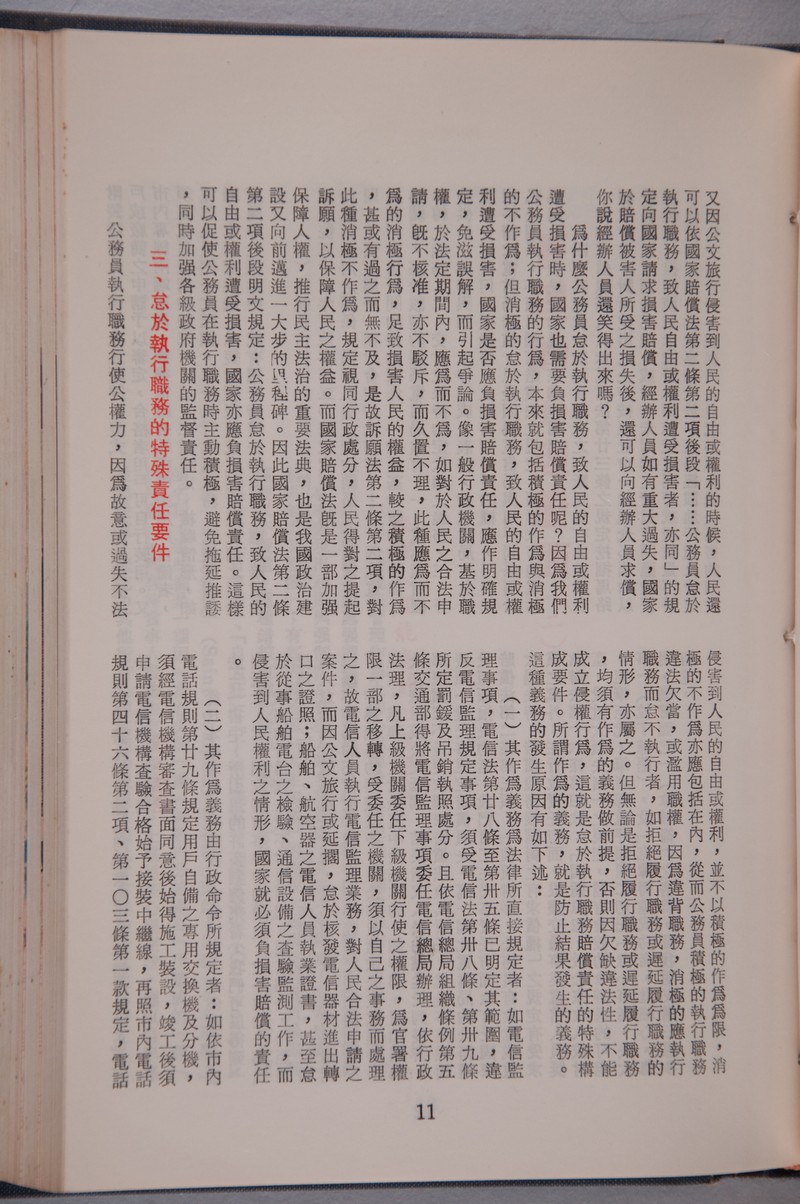 又因公文旅行侵害到人民的自由或權利的時候，人民還
可以依國家賠償法第二條第二項後段「……公務員怠於
執行職務，致人民自由或權利遭受損害者，亦同」的規
定向國家請求損害賠償，經辦人員如有重大過失，國家
於賠償被害人所受之損失後，還可以向經辦人員求償，
你說經辦人員還笑得出來嗎？
爲什麼公務員怠於執行職務，致人民的自由或權利
遭受損害時，國家也需要負損害賠償責任呢？因爲我們
公務員執行職務的行爲，本來就包括積極的作爲與消極
的不作爲；但消極的怠於執行職務，致人民的自由或權
利遭受損害，國家是否應負損害賠償責任，應作明確規
定，免滋誤解，而引起爭論。像一般行政機關，基於職
權，於法定期間內，應爲而不爲，如對於人民之合法申
請，旣不核准，亦不駁斥，而久置不理，此種應爲而不
爲的消極行爲，足致損害人民的權益，較之積極的作爲
，甚或有過之而無不及，是故訴願法第二條第二項，對
此種消極不作爲，規定視同行政處分，人民得對之提起
訴願，以保障人民之權益。而國家賠償法旣是一部加强
保障人權，推行民主法治的重要法典，也是我國政治建
設又向前邁進一大步的里程碑。因此國家賠償法第二條
第二項後段明文規定：公務員怠於執行職務，致人民的
自由或權利遭受損害，國家亦應負損害賠償責任。這樣
可以促使公務員在執行職務時主動積極，避免拖延推諉
，同時加强各級政府機關的監督責任。
三、怠於執行職務的特殊責任要件
公務員執行職務行使公權力，因爲故意或過失不法
侵害到人民的自由或權利，並不以積極的作爲爲限，消
極的不作爲亦應包括在內，從而公務員積極的執行職務
違法欠當，或濫用職權，因爲違背職務，消極的應執行
職務而怠不執行者，如拒絕履行職務或遲延履行職務的
情形，亦屬之。但無論是拒絕履行職務或遲延履行職務
，均須有作爲的義務做前提，否則因欠缺違法性，不能
成立侵權行爲，這就是怠於執行職務賠償責任的特殊構
成要件。所謂作爲的義務，就是防止結果發生的義務。
這種義務的發生原因有如下述：
（一）其作爲義務爲法律所直接規定者：如電信監
理事項，電信法第廿八條至第卅五條已明定其範圍，違
反電信監理規定事項，須受電信法第卅八條、第卅九條
所定罰鍰及吊銷執照處分。且依電信總局組織條例第五
條交通部得將電信監理事項委任電信總局辦理，依行政
法理，凡上級機關委任下級機關行使之權限，爲官署權
限一部之移轉，受委任之機關，須以自己之事務而處理
之，故電信人員執行電信監理業務，對人民合法申請之
案件，而因公文旅行或延擱，怠於核發電信器材進出轉
口之證照；船舶、航空器之電信人員執業證書，甚至怠
於從事船舶電台之檢驗、通信設備之查驗監測工作，而
侵害到人民權利之情形，國家就必須負損害賠償的責任
。
（二）其作爲義務由行政命令所規定者：如依市內
電話規則第廿九條規定用戶自備之專用交換機及分機，
須經電信機構審查書面同意後始得施工裝設，竣工後須
申請電信機構查驗合格始予接裝中繼線，再照市內電話
規則第四十六條第二項、第一〇三條第一款規定，電話
11